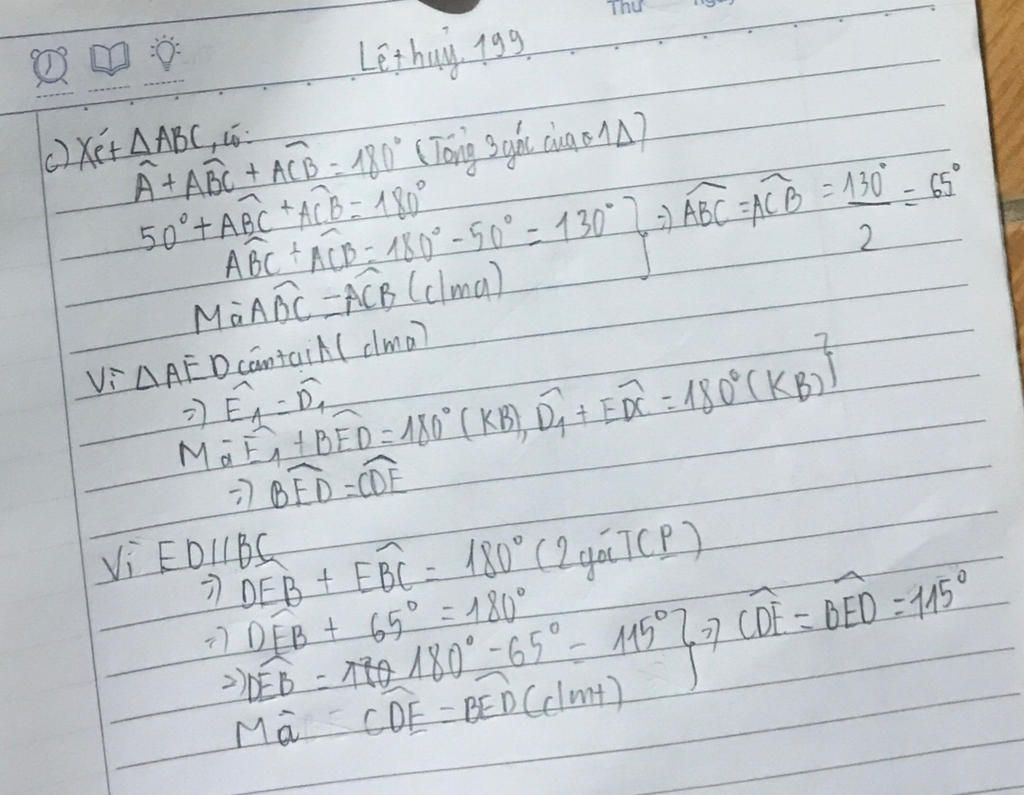 Thứ
Lêthuỷ.199
c) Xét ΔABC, có:
Â + ABĈ + AĈB = 180° (Tổng 3 góc của 1Δ)
50° + AB̂C + AĈB = 180°
AB̂C + AĈB = 180° - 50° = 130° } => AB̂C = AĈB = 130°/2 = 65°
Mà AB̂C = AĈB (clma)
Vì ΔAED cân tại A ( clma)
=> Ê₁ = D̂₁
Mà Ê₁ + BÊD = 180° (KB), D̂₁ + ED̂C = 180° (KB) }
=> BÊD = CD̂E
Vì ED//BC
=> DÊB + EB̂C = 180° (2 góc TCP)
=> DÊB + 65° = 180°
=> DÊB = 180° - 65° = 115° } => CD̂E = BÊD = 115°
Mà CD̂E = BÊD (clmt)